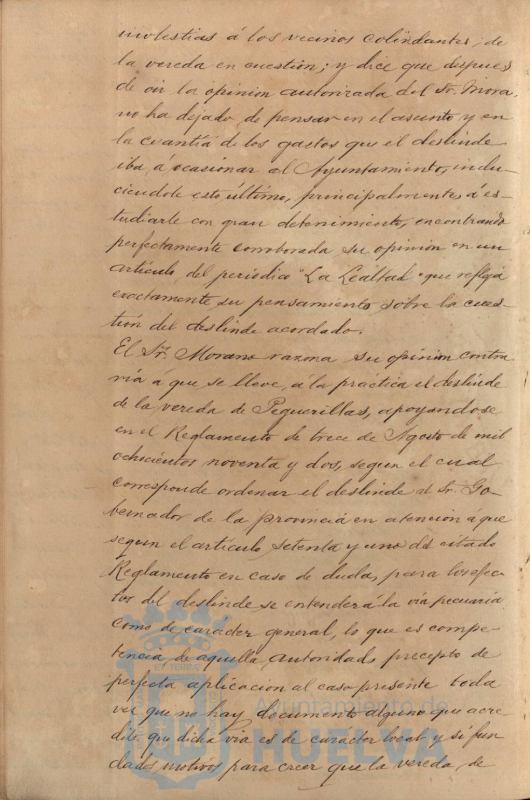 molestias á los vecinos colindantes, de
la vereda en cuestión; y dice que despues
de oir la opinion autorizada del Sr. Mora,
no ha dejado de pensar en el asunto y en
la cuantía de los gastos que el deslinde
iba á ocasionar al Ayuntamiento, indu-
ciendole esto último, principalmente, á es-
tudiarle con gran detenimiento, encontrando
perfectamente corroborada su opinion en un
articulo del periodico "La Lealtad" que refleja
exactamente su pensamiento sobre la cues-
tion del deslinde acordado.
El Sr. Morano razona su opinion contra
ria á que se lleve, á la práctica el deslinde
de la vereda de Peguerillas, apoyandose
en el Reglamento de trece de Agosto de mil
ochocientos noventa y dos, segun el cual
corresponde ordenar el deslinde al Sr. Go-
bernador de la provincia en atencion á que
segun el artículo setenta y uno del citado
Reglamento en caso de duda, para los efec-
tos del deslinde se entenderá la via pecuaria
como de carácter general, lo que es compe-
tencia de aquella autoridad, precepto de
perfecta aplicacion al caso presente toda
vez que no hay documento alguno que acre-
dite que dicha via es de carácter local y si fun
dados motivos para creer que la vereda, de
Ayuntamiento de
HUELVA